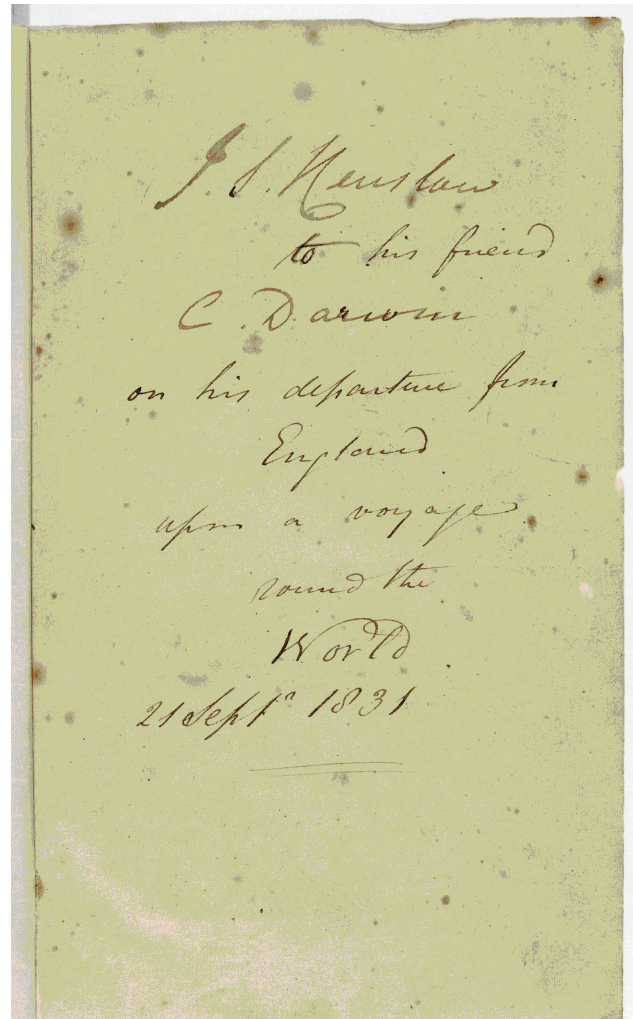 J. S. Henslow
to his friend
C. Darwin
on his departure from
England
upon a voyage
round the
World
21 Septr 1831